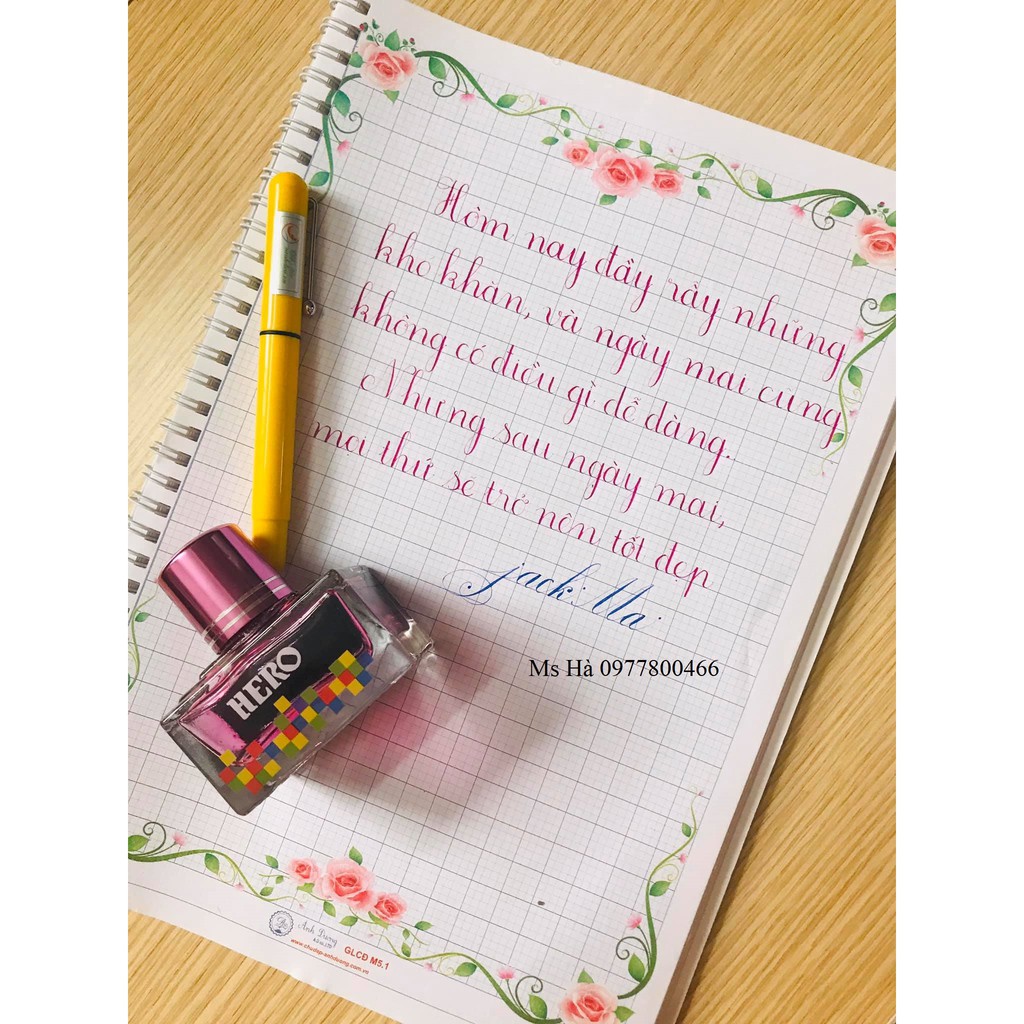 Hôm nay đầy rẫy những
khó khăn, và ngày mai cũng
không có điều gì dễ dàng.
Nhưng sau ngày mai,
mọi thứ sẽ trở nên tốt đẹp
jack Ma
Ms Hà 0977800466
HERO
Ánh Dương
www.chudep-anhduong.com.vn
GLCĐ M5.1